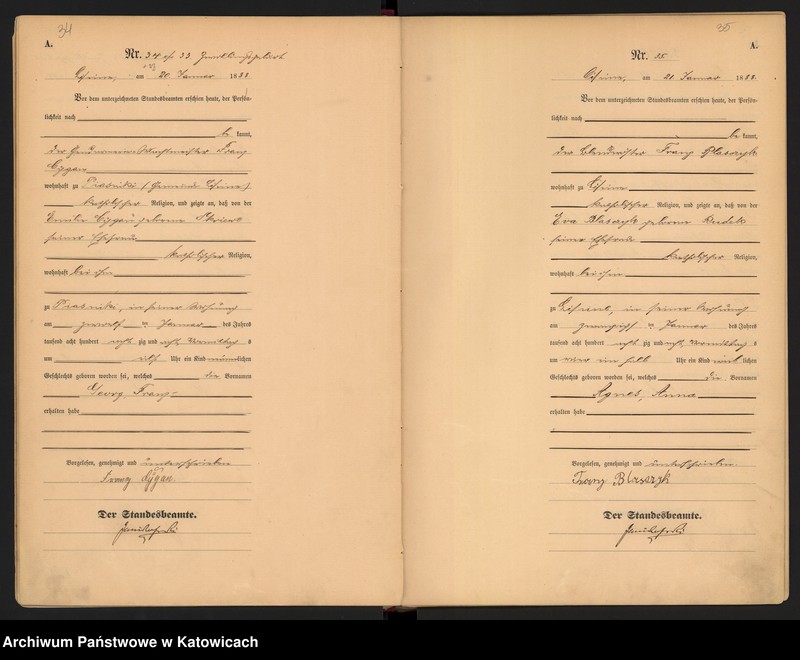 34
A.
Nr. 34
am 20 Januar 1888.
Vor dem unterzeichneten Standesbeamten erschien heute, der Persön-
lichkeit nach
be kannt,
der Franz
Cygan
wohnhaft zu Piasniki (Gemeinde
katholischer Religion, und zeigte an, daß von der
Emilie Cygan geborene
seiner Ehefrau
katholischer Religion,
wohnhaft bei ihm
zu Piasniki, in seiner Wohnung
am zwölf ten Januar des Jahres
tausend acht hundert acht zig und acht, Vormittags
um elf Uhr ein Kind männlichen
Geschlechts geboren worden sei, welches die Vornamen
Georg, Franz
erhalten habe
Vorgelesen, genehmigt und unterschrieben
Franz Cygan.
Der Standesbeamte.
35
A.
Nr. 35
am 21 Januar 1888.
Vor dem unterzeichneten Standesbeamten erschien heute, der Persön-
lichkeit nach
be kannt,
der Franz Blaszyk
wohnhaft zu
katholischer Religion, und zeigte an, daß von der
Eva geborene
seiner Ehefrau
katholischer Religion,
wohnhaft bei ihm
zu in seiner Wohnung
am zwanzigsten Januar des Jahres
tausend acht hundert acht zig und acht, Vormittags
um Uhr ein Kind weib lichen
Geschlechts geboren worden sei, welches die Vornamen
Agnes, Anna
erhalten habe
Vorgelesen, genehmigt und unterschrieben.
Franz
Der Standesbeamte.
Archiwum Państwowe w Katowicach